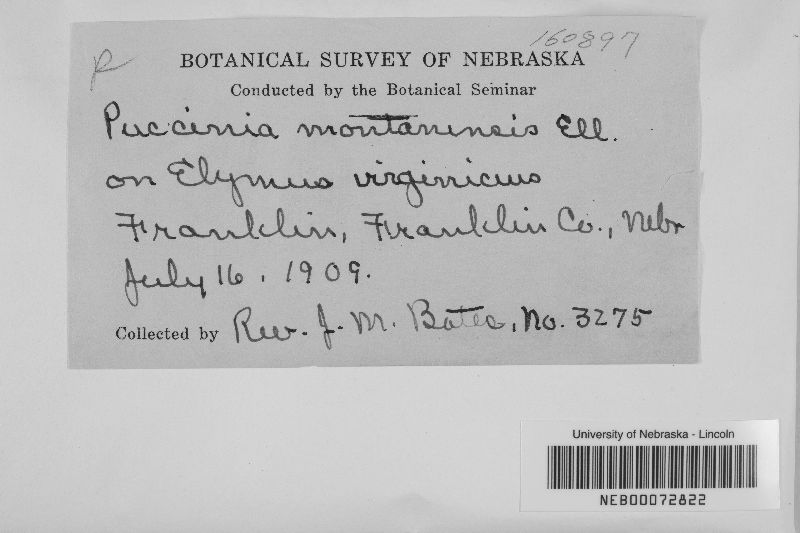 160897
R
BOTANICAL SURVEY OF NEBRASKA
Conducted by the Botanical Seminar
Puccinia montanensis Ell.
on Elymus virginicus
Franklin, Franklin Co., Nebr
July 16, 1909.
Collected by Rev. J. M. Bates, No. 3275
University of Nebraska - Lincoln
NEB00072822